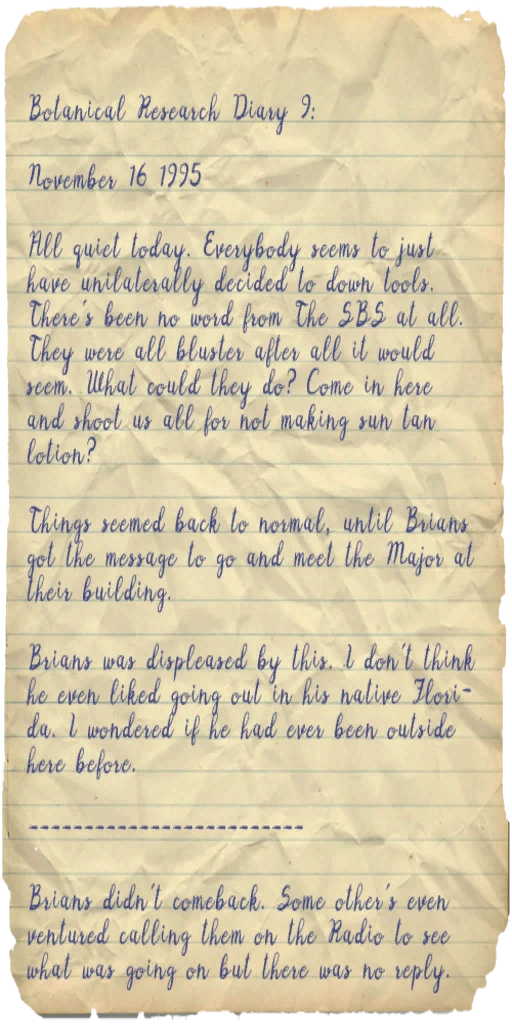 Botanical Research Diary 9:
November 16 1995
All quiet today. Everybody seems to just
have unilaterally decided to down tools.
There's been no word from The SBS at all.
They were all bluster after all it would
seem. What could they do? Come in here
and shoot us all for not making sun tan
lotion?
Things seemed back to normal, until Brians
got the message to go and meet the Major at
their building.
Brians was displeased by this. I don't think
he even liked going out in his native Flori-
da. I wondered if he had ever been outside
here before.
-------------------------
Brians didn't comeback. Some other's even
ventured calling them on the Radio to see
what was going on but there was no reply.